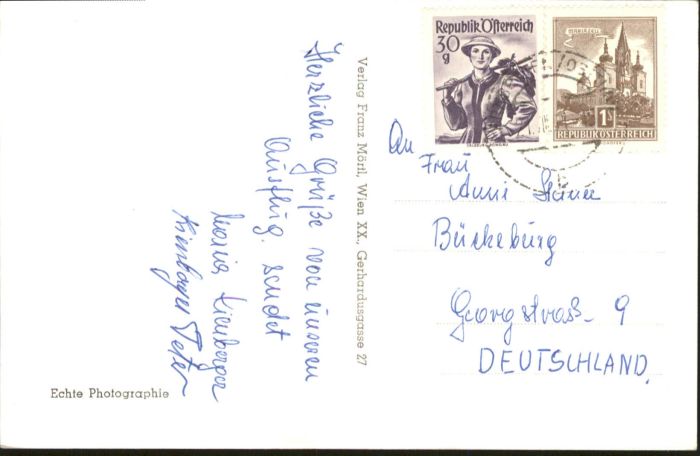 Herzliche Grüße von unseren
Ausflug. sendet
Maria Kienberger
Kienberger Peter
Verlag Franz Mörtl, Wien XX., Gerhardusgasse 27
Echte Photographie
Republik Österreich
30
g
MARIAZELL
1S
REPUBLIK ÖSTERREICH
An
Frau
Anni
Bückeburg
Georgstraß. 9
DEUTSCHLAND.